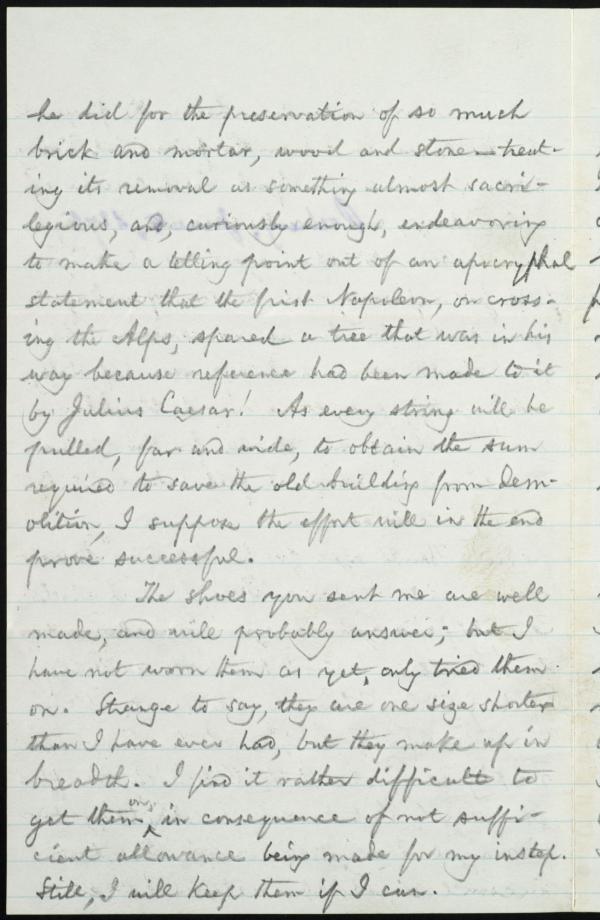 he did for the preservation of so much
brick and mortar, wood and stone—treat-
ing its removal as something almost sacri-
legious, and, curiously enough, endeavoring
to make a telling point out of an apocryphal
statement that the first Napoleon, on cross-
ing the Alps, spared a tree that was in his
way because reference had been made to it
by Julius Caesar! As every string will be
pulled, far and wide, to obtain the sum
required to save the old building from dem-
olition, I suppose the effort will in the end
prove successful.
The shoes you sent me are well
made, and will probably answer; but I
have not worn them as yet, only tried them
on. Strange to say, they are one size shorter
than I have ever had, but they make up in
breadth. I find it rather difficult to
get them on, in consequence of not suffi-
cient allowance being made for my instep.
Still, I will keep them if I can.